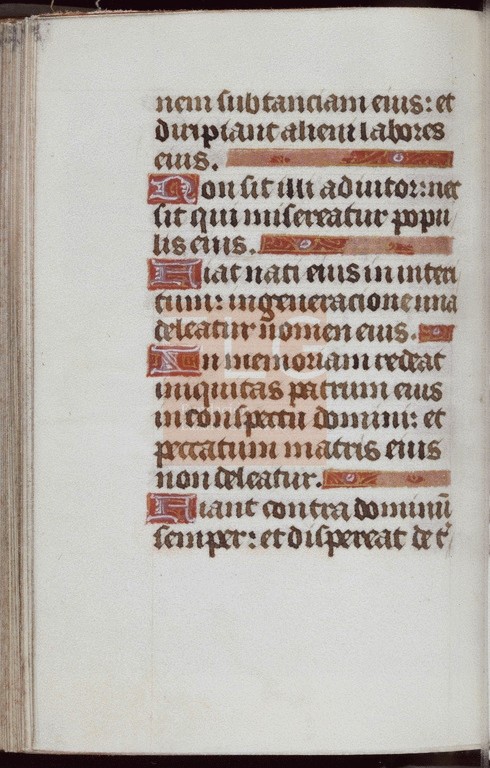 nem subtanciam eius: et
diripiant alieni labores
eius.
Non sit illi adiutor: nec
sit qui misereatur popu
lis eius.
Fiat nati eius in interi
tum: in generacione una
deleatur nomen eius.
In memoriam redeat
iniquitas patrum eius
in conspectu domini: et
peccatum matris eius
non deleatur.
Fiant contra dominū
semper: et dispereat de t